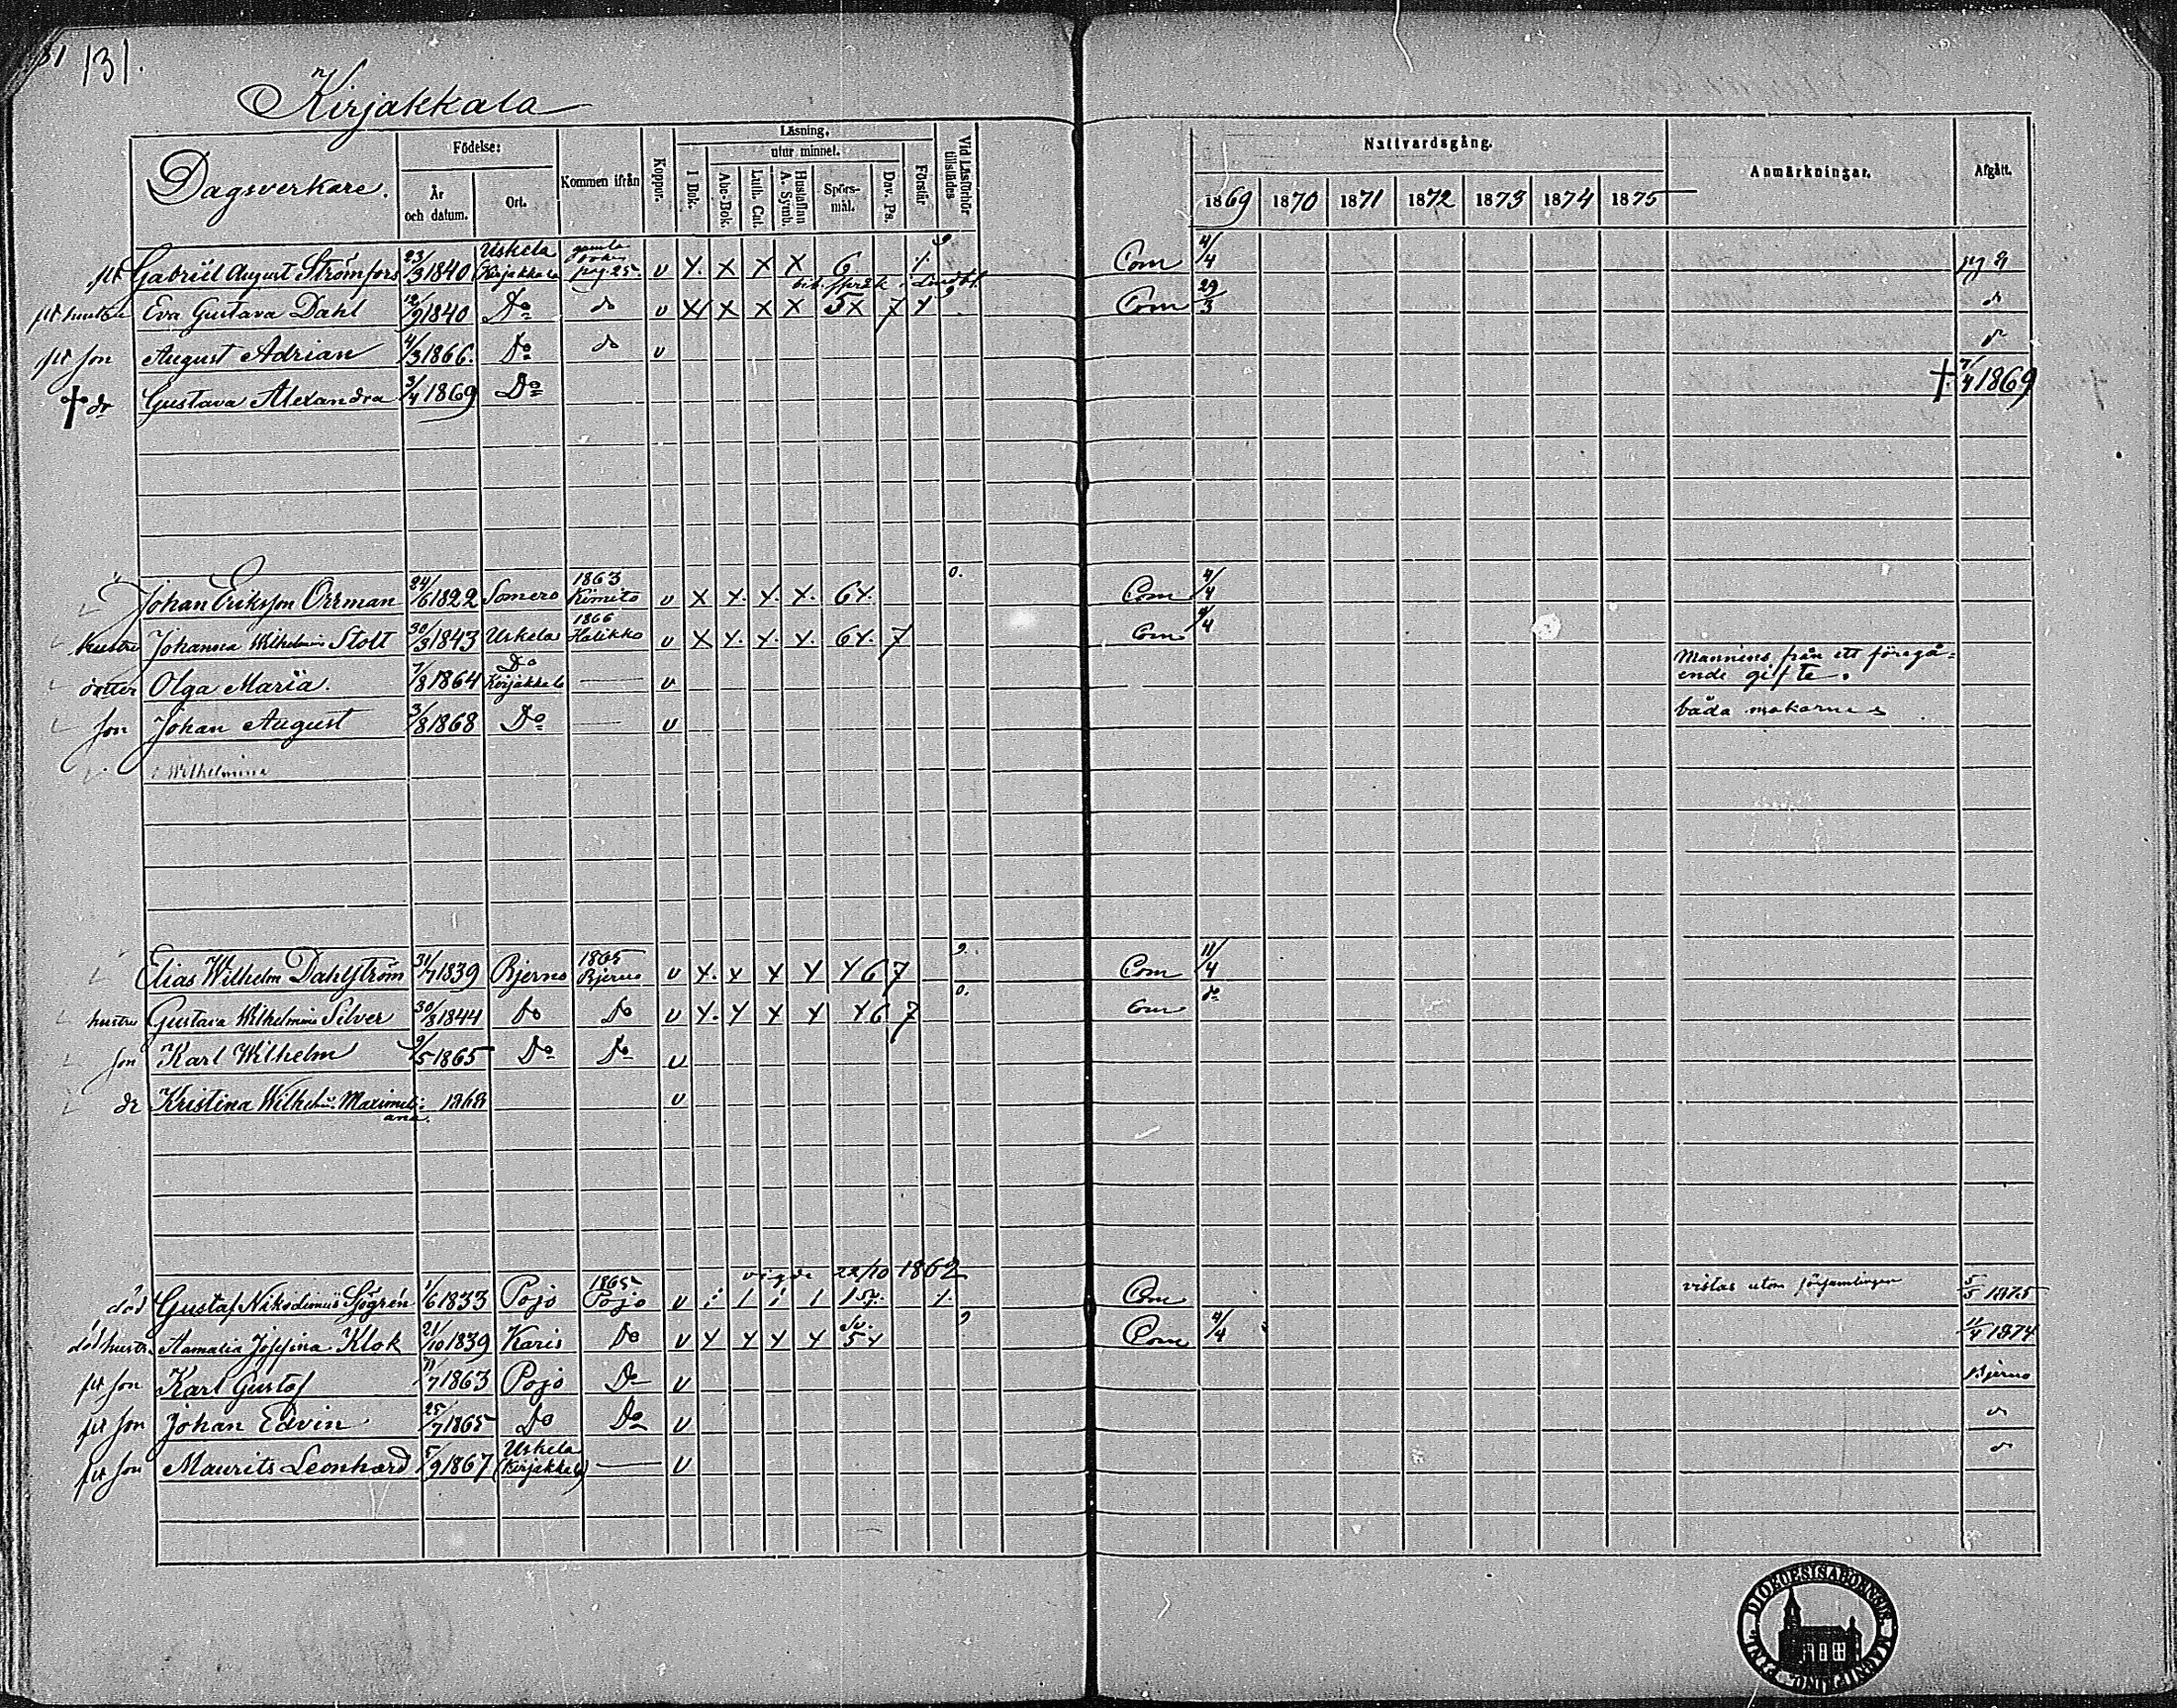 131.
Kirjakkala
Dagsverkare.
Födelse:
År och datum.
Ort.
Kommen ifrån
Koppor.
Läsning.
I Bok.
utur minnet.
Abc-Bok.
Luth. Cat.
Hustaflan A. Symb.
Spörs-mål.
Dav. Ps.
Förstår
Vid Läsförhör tillstädes
Nattvardsgång.
1869 1870 1871 1872 1873 1874 1875
Anmärkningar.
Afgått.
Gabriël August Strömfors 23/3 1840 Uskela Kirjakkala gamla boken pag 25 v Com 4/4
Eva Gustava Dahl 12/9 1840 Do do v x x x x 5x 7 Com 29/3 do
son August Adrian 4/3 1866. Do do v
† dr Gustava Alexandra 3/4 1869 Do † 7/4 1869
Johan Eriksson Orrman 24/6 1822 Somero 1863 Kimito v x x. x. x. 6x. 0. Com 4/4
hustru Johanna Wilhelmina Stolt 30/3 1843 Uskela 1866 Halikko v x x. x. x. 6x. 7 Com 4/4
dotter Olga Maria. 7/8 1864 Do Kirjakkala — v Mannens från ett föregå-
ende gifte.
son Johan August 3/8 1868 Do — v båda makarnes
Wilhelmina
Elias Wilhelm Dahlström 31/7 1839 Bjerno 1865 Bjerno v x. x x x x 6 7 Com 11/4
hustru Gustava Wilhelmina Silver 30/8 1844 Do Do v x. x x x x 6 7 0. Com do
son Karl Wilhelm 9/5 1865 Do Do v
dr Kristina Wilhelm. Maximili-
ana. 1868 v
vigde 22/10 1862
död Gustaf Nikodemus Sjögrén 1/6 1833 Pojo 1865 Pojo v Com vistas utom församlingen 5/5 1875
död hustr. Aamalia Josefina Klok 21/10 1839 Karis Do v x x x x 5x Com 4/4 11/4 1874
son Karl Gustaf 11/7 1863 Pojo Do v Bjerno
son Johan Edvin 25/7 1865 Do Do v do
son Maurits Leonhard 5/9 1867 Uskela (Kirjakkala) — v do
DIOECESIS ABOENSIS MAGNI DUC. FINL.